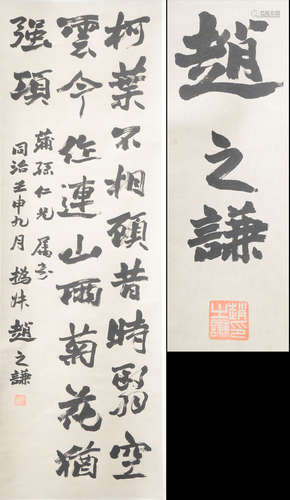 柯葉不相顧昔時翳空
雲今作連山雨菊花猶
强項
蒲孫仁兄屬書
同治壬申九月撝叔趙之謙
趙之謙